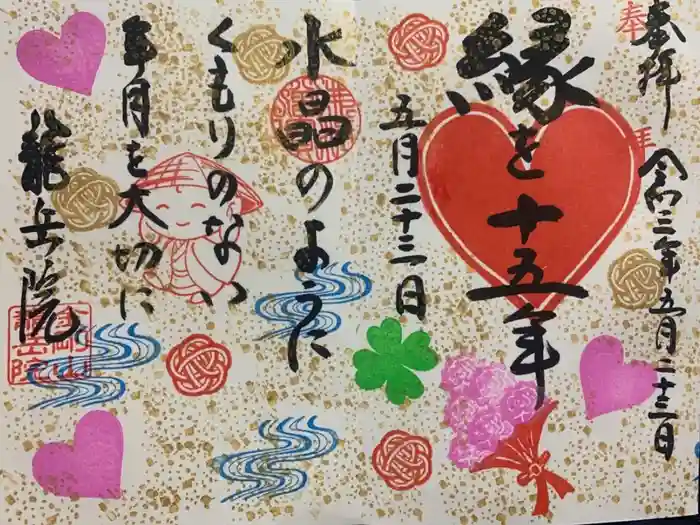 奉拝
奉拝
令和三年五月二十三日
縁を十五年
五月二十三日
水晶のように
くもりのない
年月を大切に
龍岳院